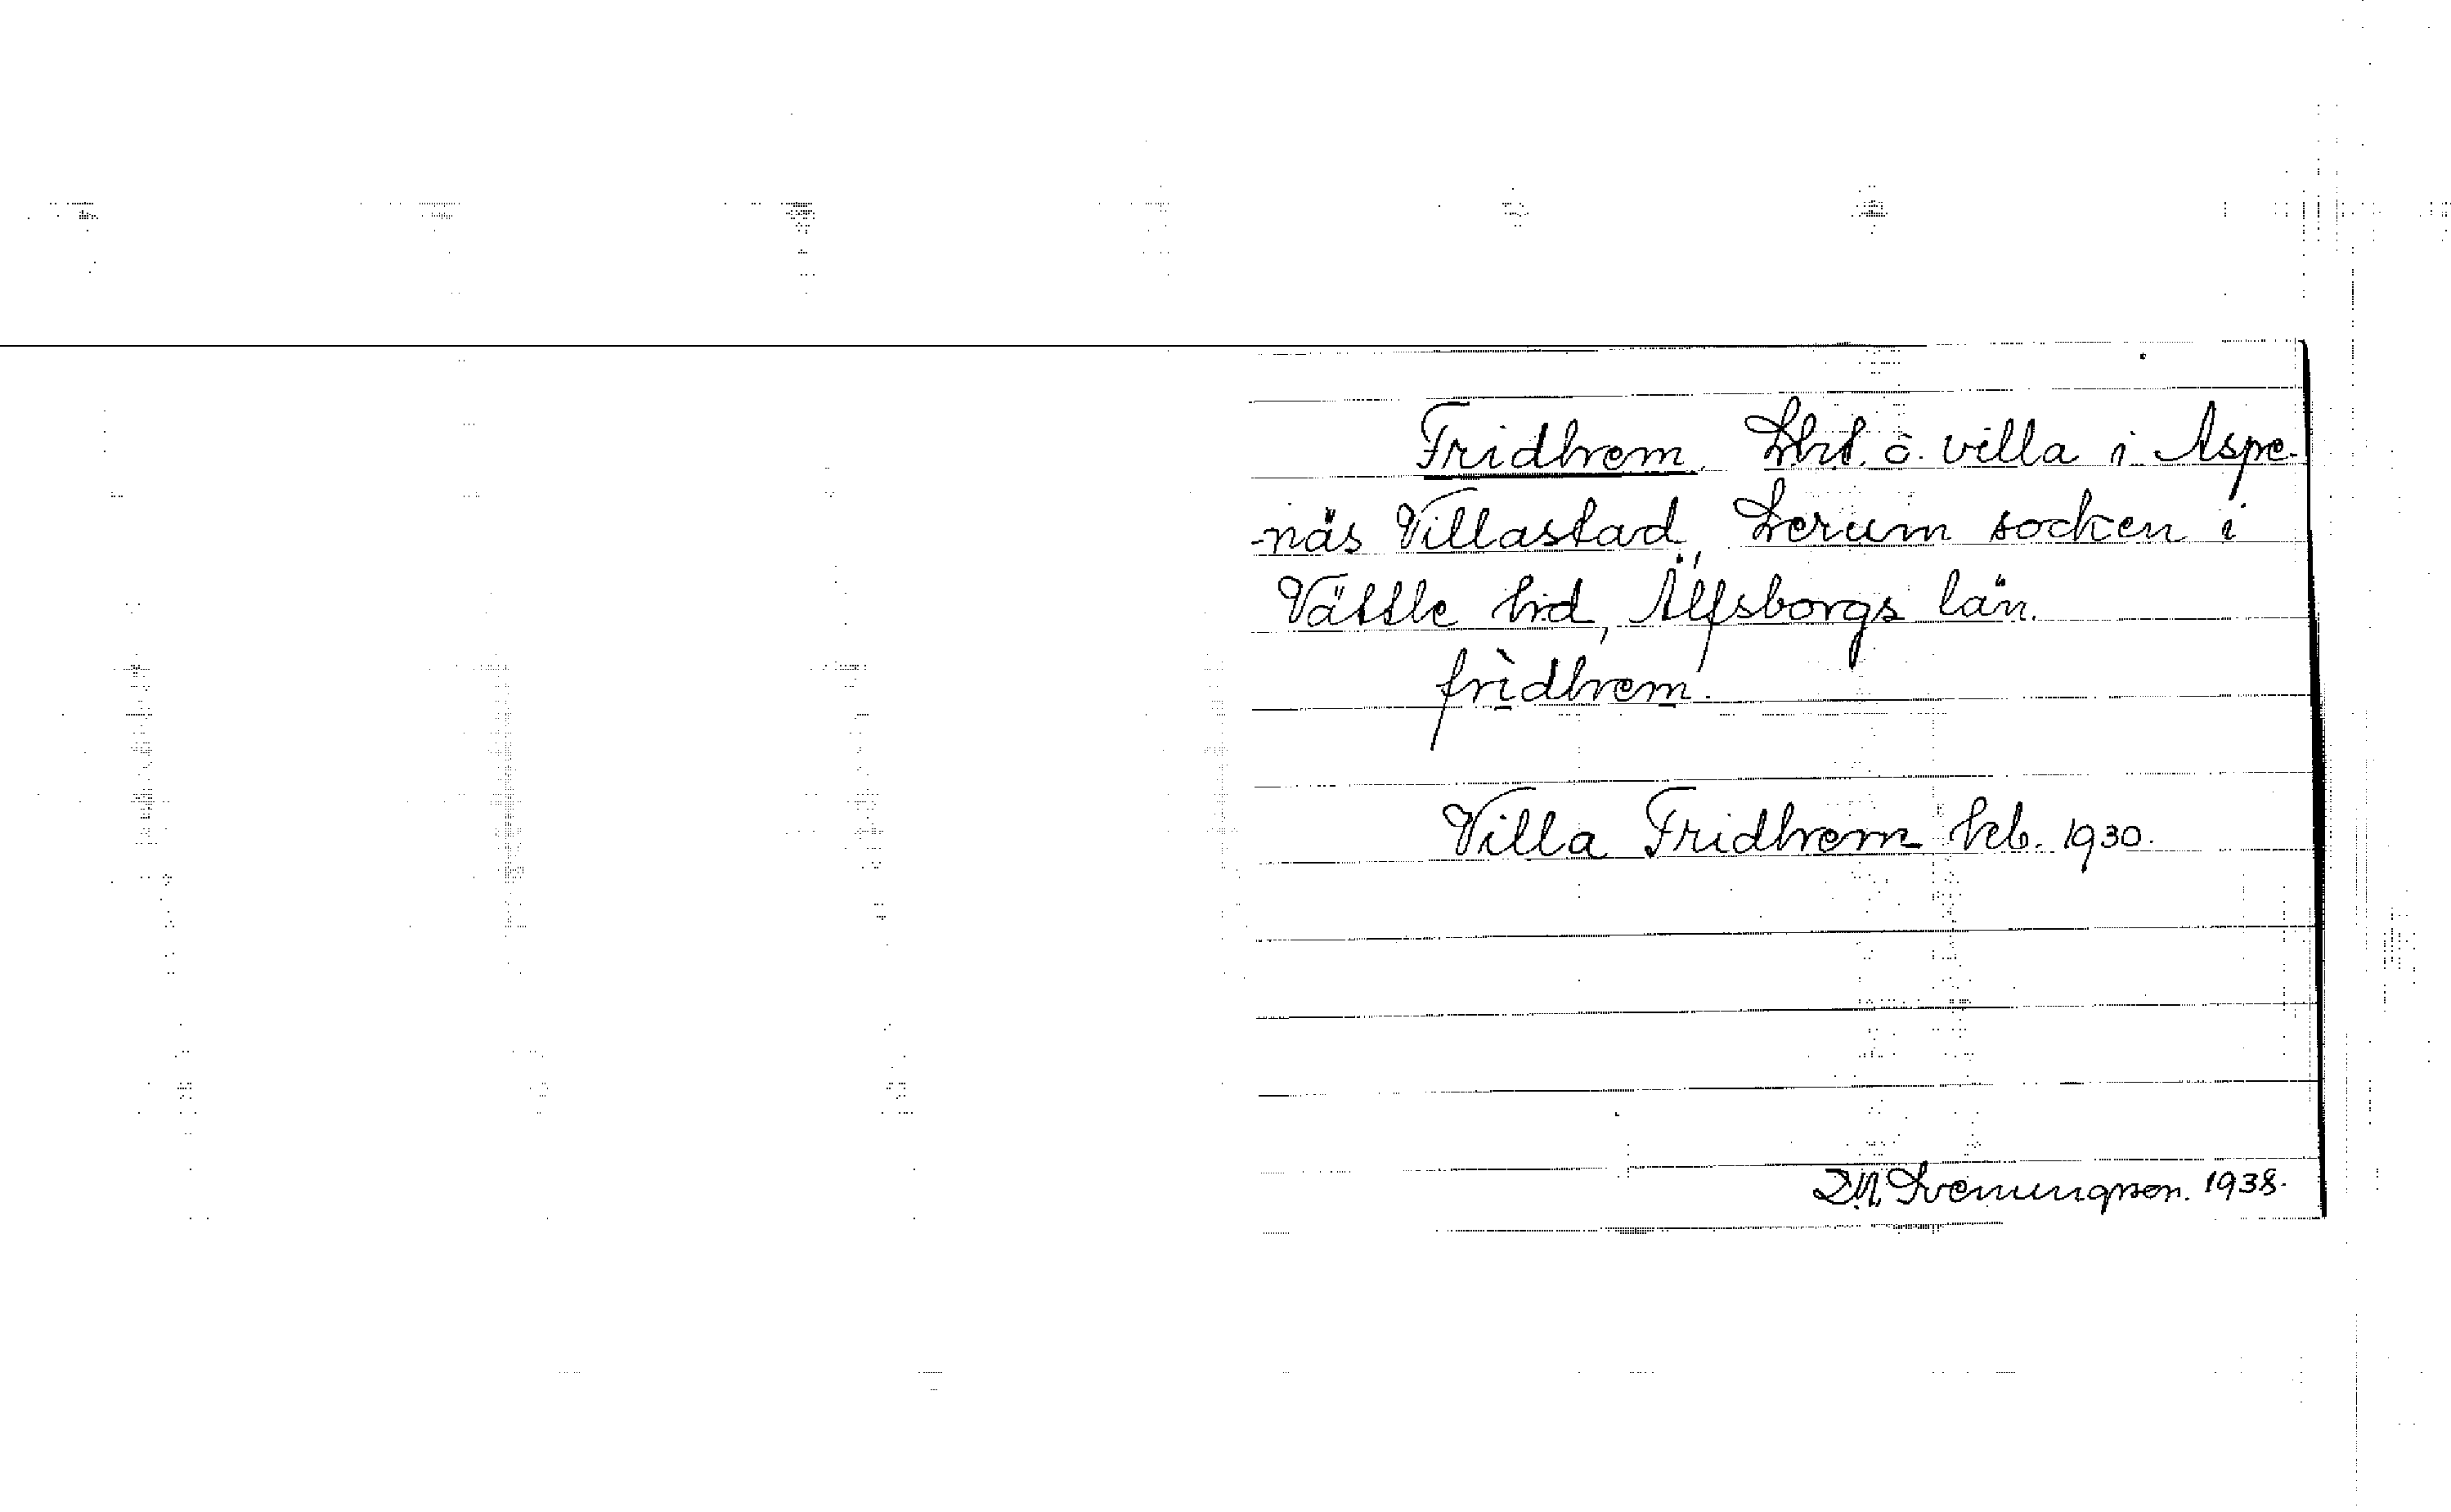 Fridhem. Lht. o. villa i Aspe-
-näs Villastad, Lerum socken i
Vättle hd, Älfsborgs län.
frìdhem.
Villa Fridhem heb. 1930.
1938.